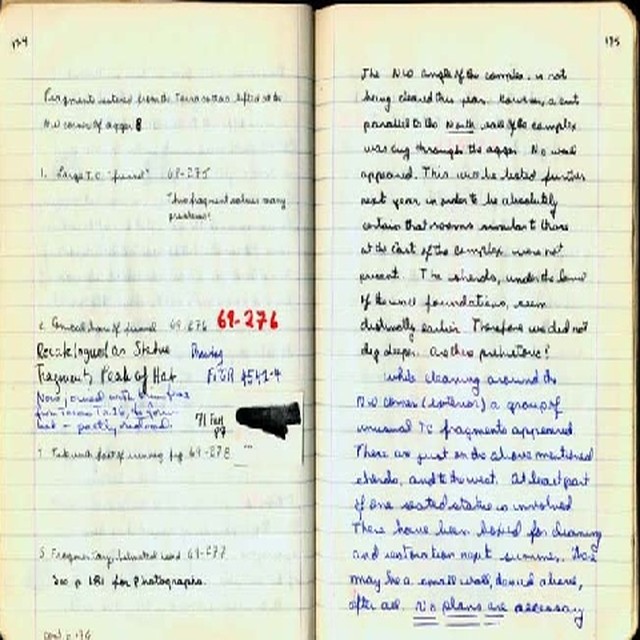 134
Fragments entered from the Terracottas lifted at the
NW corner of agger 8
1. Large T.C. "funnel" 69-275
This fragment solves many
problems!
2. Conical horn of funnel 69-276 69-276
Recatalogued as Statue
Fragment, Peak of Hat
Now joined with
hat - partly restored.
71
foot of 69-278
5. Fragmentary, helmeted head 69-277
See p 181 for photographs.
195
The NW angle of the complex is not
being cleared this year. However, a cut
parallel to the North wall of the complex
was dug through the agger. No wall
appeared. This will be tested further
next year in order to be absolutely
certain that rooms similar to those
at the East of the complex were not
present. The sherds, under the level
of the wall foundations, seem
distinctly earlier. Therefore we did not
dig deeper. Are they prehistoric?
While cleaning around the
NW corner (exterior) a group of
unusual TC fragments appeared.
These are just on the above mentioned
sherds, and to the west. At least part
of one seated statue is involved
These have been boxed for cleaning
and restoration next summer. There
may be a small wall, denied above,
after all. plans are necessary